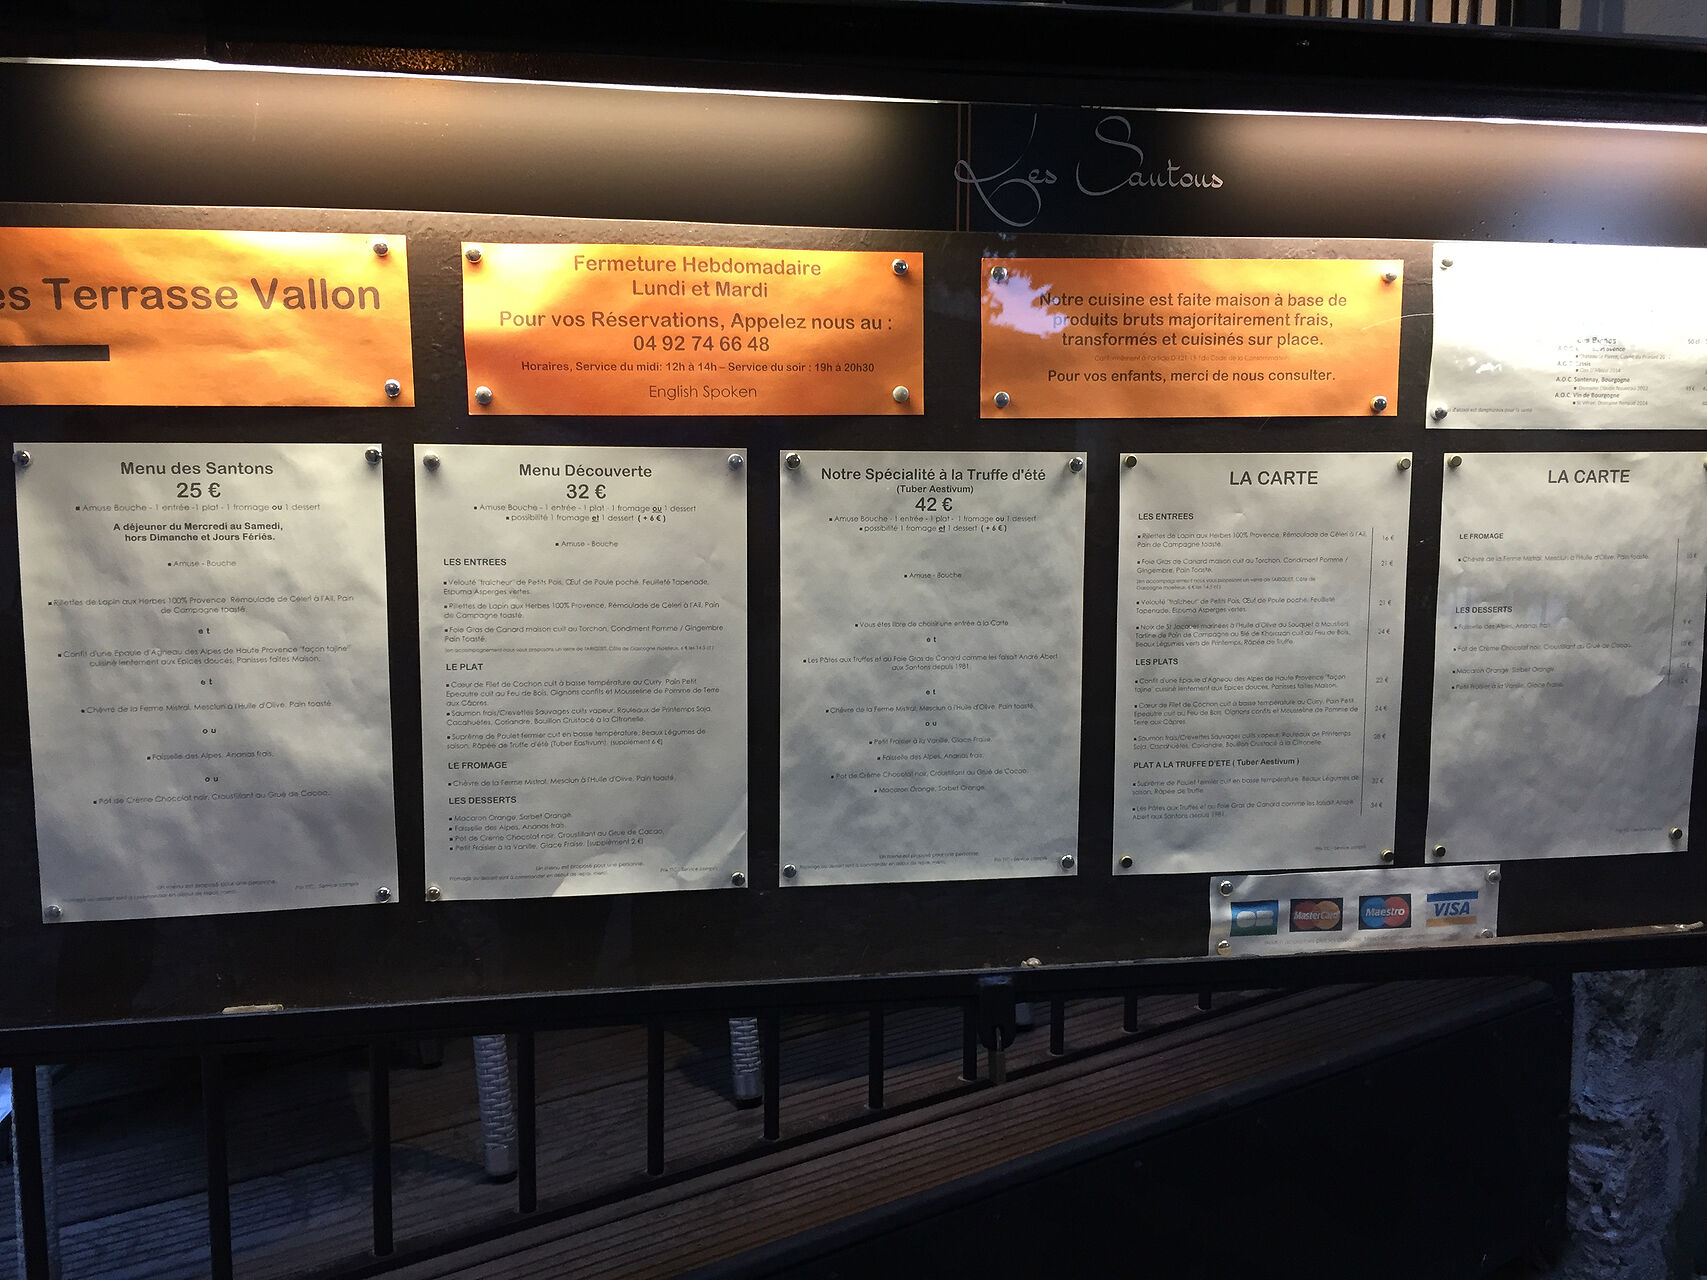 Les Santons
es Terrasse Vallon
Fermeture Hebdomadaire
Lundi et Mardi
Pour vos Réservations, Appelez nous au :
04 92 74 66 48
Horaires, Service du midi: 12h à 14h – Service du soir : 19h à 20h30
English Spoken
Notre cuisine est faite maison à base de
produits bruts majoritairement frais,
transformés et cuisinés sur place.
Conformément à l'article D 121-13-1 du Code de la Consommation
Pour vos enfants, merci de nous consulter.
50 cl
A.O.C. Santenay, Bourgogne
A.O.C. Vin de Bourgogne
Menu des Santons
25 €
▪ Amuse Bouche - 1 entrée -1 plat - 1 fromage ou 1 dessert
A déjeuner du Mercredi au Samedi,
hors Dimanche et Jours Fériés.
▪ Amuse - Bouche
▪ Rillettes de Lapin aux Herbes 100% Provence, Rémoulade de Céleri à l'Ail, Pain
de Campagne toasté.
e t
▪ Confit d'une Epaule d'Agneau des Alpes de Haute Provence "façon tajine"
cuisiné lentement aux Epices douces, Panisses faites Maison.
e t
▪ Chèvre de la Ferme Mistral, Mesclun à l'Huile d'Olive, Pain toasté.
o u
▪ Faisselle des Alpes, Ananas frais.
o u
▪ Pot de Crème Chocolat noir, Croustillant au Grué de Cacao.
Un menu est proposé pour une personne.
Fromage ou dessert sont à commander en début de repas, merci.
Prix TTC - Service compris
Menu Découverte
32 €
▪ Amuse Bouche - 1 entrée -1 plat - 1 fromage ou 1 dessert
▪ possibilité 1 fromage et 1 dessert ( + 6 € )
▪ Amuse - Bouche
LES ENTREES
▪ Velouté "fraîcheur" de Petits Pois, Œuf de Poule poché, Feuilleté Tapenade,
Espuma Asperges vertes.
▪ Rillettes de Lapin aux Herbes 100% Provence, Rémoulade de Céleri à l'Ail, Pain
de Campagne toasté.
▪ Foie Gras de Canard maison cuit au Torchon, Condiment Pomme / Gingembre
Pain Toasté.
LE PLAT
▪ Cœur de Filet de Cochon cuit à basse température au Curry, Pain Petit
Epeautre cuit au Feu de Bois, Oignons confits et Mousseline de Pomme de Terre
aux Câpres.
▪ Saumon frais/Crevettes Sauvages cuits vapeur, Rouleaux de Printemps Soja,
Cacahuètes, Coriandre, Bouillon Crustacé à la Citronelle.
▪ Suprême de Poulet fermier cuit en basse température, Beaux Légumes de
saison, Râpée de Truffe d'été (Tuber Eastivum). (supplément 6 €)
LE FROMAGE
▪ Chèvre de la Ferme Mistral, Mesclun à l'Huile d'Olive, Pain toasté.
LES DESSERTS
▪ Macaron Orange, Sorbet Orange.
▪ Faisselle des Alpes, Ananas frais.
▪ Pot de Crème Chocolat noir, Croustillant au Grué de Cacao.
▪ Petit Fraisier à la Vanille, Glace Fraise. (supplément 2 €)
Un menu est proposé pour une personne.
Fromage ou dessert sont à commander en début de repas, merci.
Prix TTC - Service compris
Notre Spécialité à la Truffe d'été
(Tuber Aestivum)
42 €
▪ Amuse Bouche - 1 entrée -1 plat - 1 fromage ou 1 dessert
▪ possibilité 1 fromage et 1 dessert ( + 6 € )
▪ Amuse - Bouche
▪ Vous êtes libre de choisir une entrée à la Carte
e t
▪ Les Pâtes aux Truffes et au Foie Gras de Canard comme les faisait André Abert
aux Santons depuis 1981.
e t
▪ Chèvre de la Ferme Mistral, Mesclun à l'Huile d'Olive, Pain toasté.
o u
▪ Petit Fraisier à la Vanille, Glace Fraise.
▪ Faisselle des Alpes, Ananas frais.
▪ Pot de Crème Chocolat noir, Croustillant au Grué de Cacao.
▪ Macaron Orange, Sorbet Orange.
Un menu est proposé pour une personne.
Fromage ou dessert sont à commander en début de repas, merci.
Prix TTC - Service compris
LA CARTE
LES ENTREES
▪ Rillettes de Lapin aux Herbes 100% Provence, Rémoulade de Céleri à l'Ail, 16 €
Pain de Campagne toasté.
▪ Foie Gras de Canard maison cuit au Torchon, Condiment Pomme / 21 €
Gingembre, Pain Toasté.
▪ Velouté "fraîcheur" de Petits Pois, Œuf de Poule poché, Feuilleté 21 €
Tapenade, Espuma Asperges vertes.
▪ Noix de St Jacques marinées à l'Huile d'Olive du Souquet à Moustiers 24 €
Tartine de Pain de Campagne au Blé de Khorazan cuit au Feu de Bois,
Beaux Légumes verts de Printemps, Râpée de Truffe
LES PLATS
▪ Confit d'une Epaule d'Agneau des Alpes de Haute Provence "façon 22 €
tajine" cuisiné lentement aux Epices douces, Panisses faites Maison.
▪ Cœur de Filet de Cochon cuit à basse température au Curry, Pain Petit 24 €
Epeautre cuit au Feu de Bois, Oignons confits et Mousseline de Pomme de
Terre aux Câpres.
▪ Saumon frais/Crevettes Sauvages cuits vapeur, Rouleaux de Printemps 28 €
Soja, Cacahuètes, Coriandre, Bouillon Crustacé à la Citronelle.
PLAT A LA TRUFFE D'ETE ( Tuber Aestivum )
▪ Suprême de Poulet fermier cuit en basse température, Beaux Légumes de 32 €
saison, Râpée de Truffe.
▪ Les Pâtes aux Truffes et au Foie Gras de Canard comme les faisait André 34 €
Abert aux Santons depuis 1981.
Prix TTC - Service compris
LA CARTE
LE FROMAGE
▪ Chèvre de la Ferme Mistral, Mesclun à l'Huile d'Olive, Pain toasté.
LES DESSERTS
▪ Faisselle des Alpes, Ananas frais.
▪ Pot de Crème Chocolat noir, Croustillant au Grué de Cacao.
▪ Macaron Orange, Sorbet Orange
▪ Petit Fraisier à la Vanille, Glace Fraise.
Prix TTC - Service compris
CB
MasterCard
Maestro
VISA